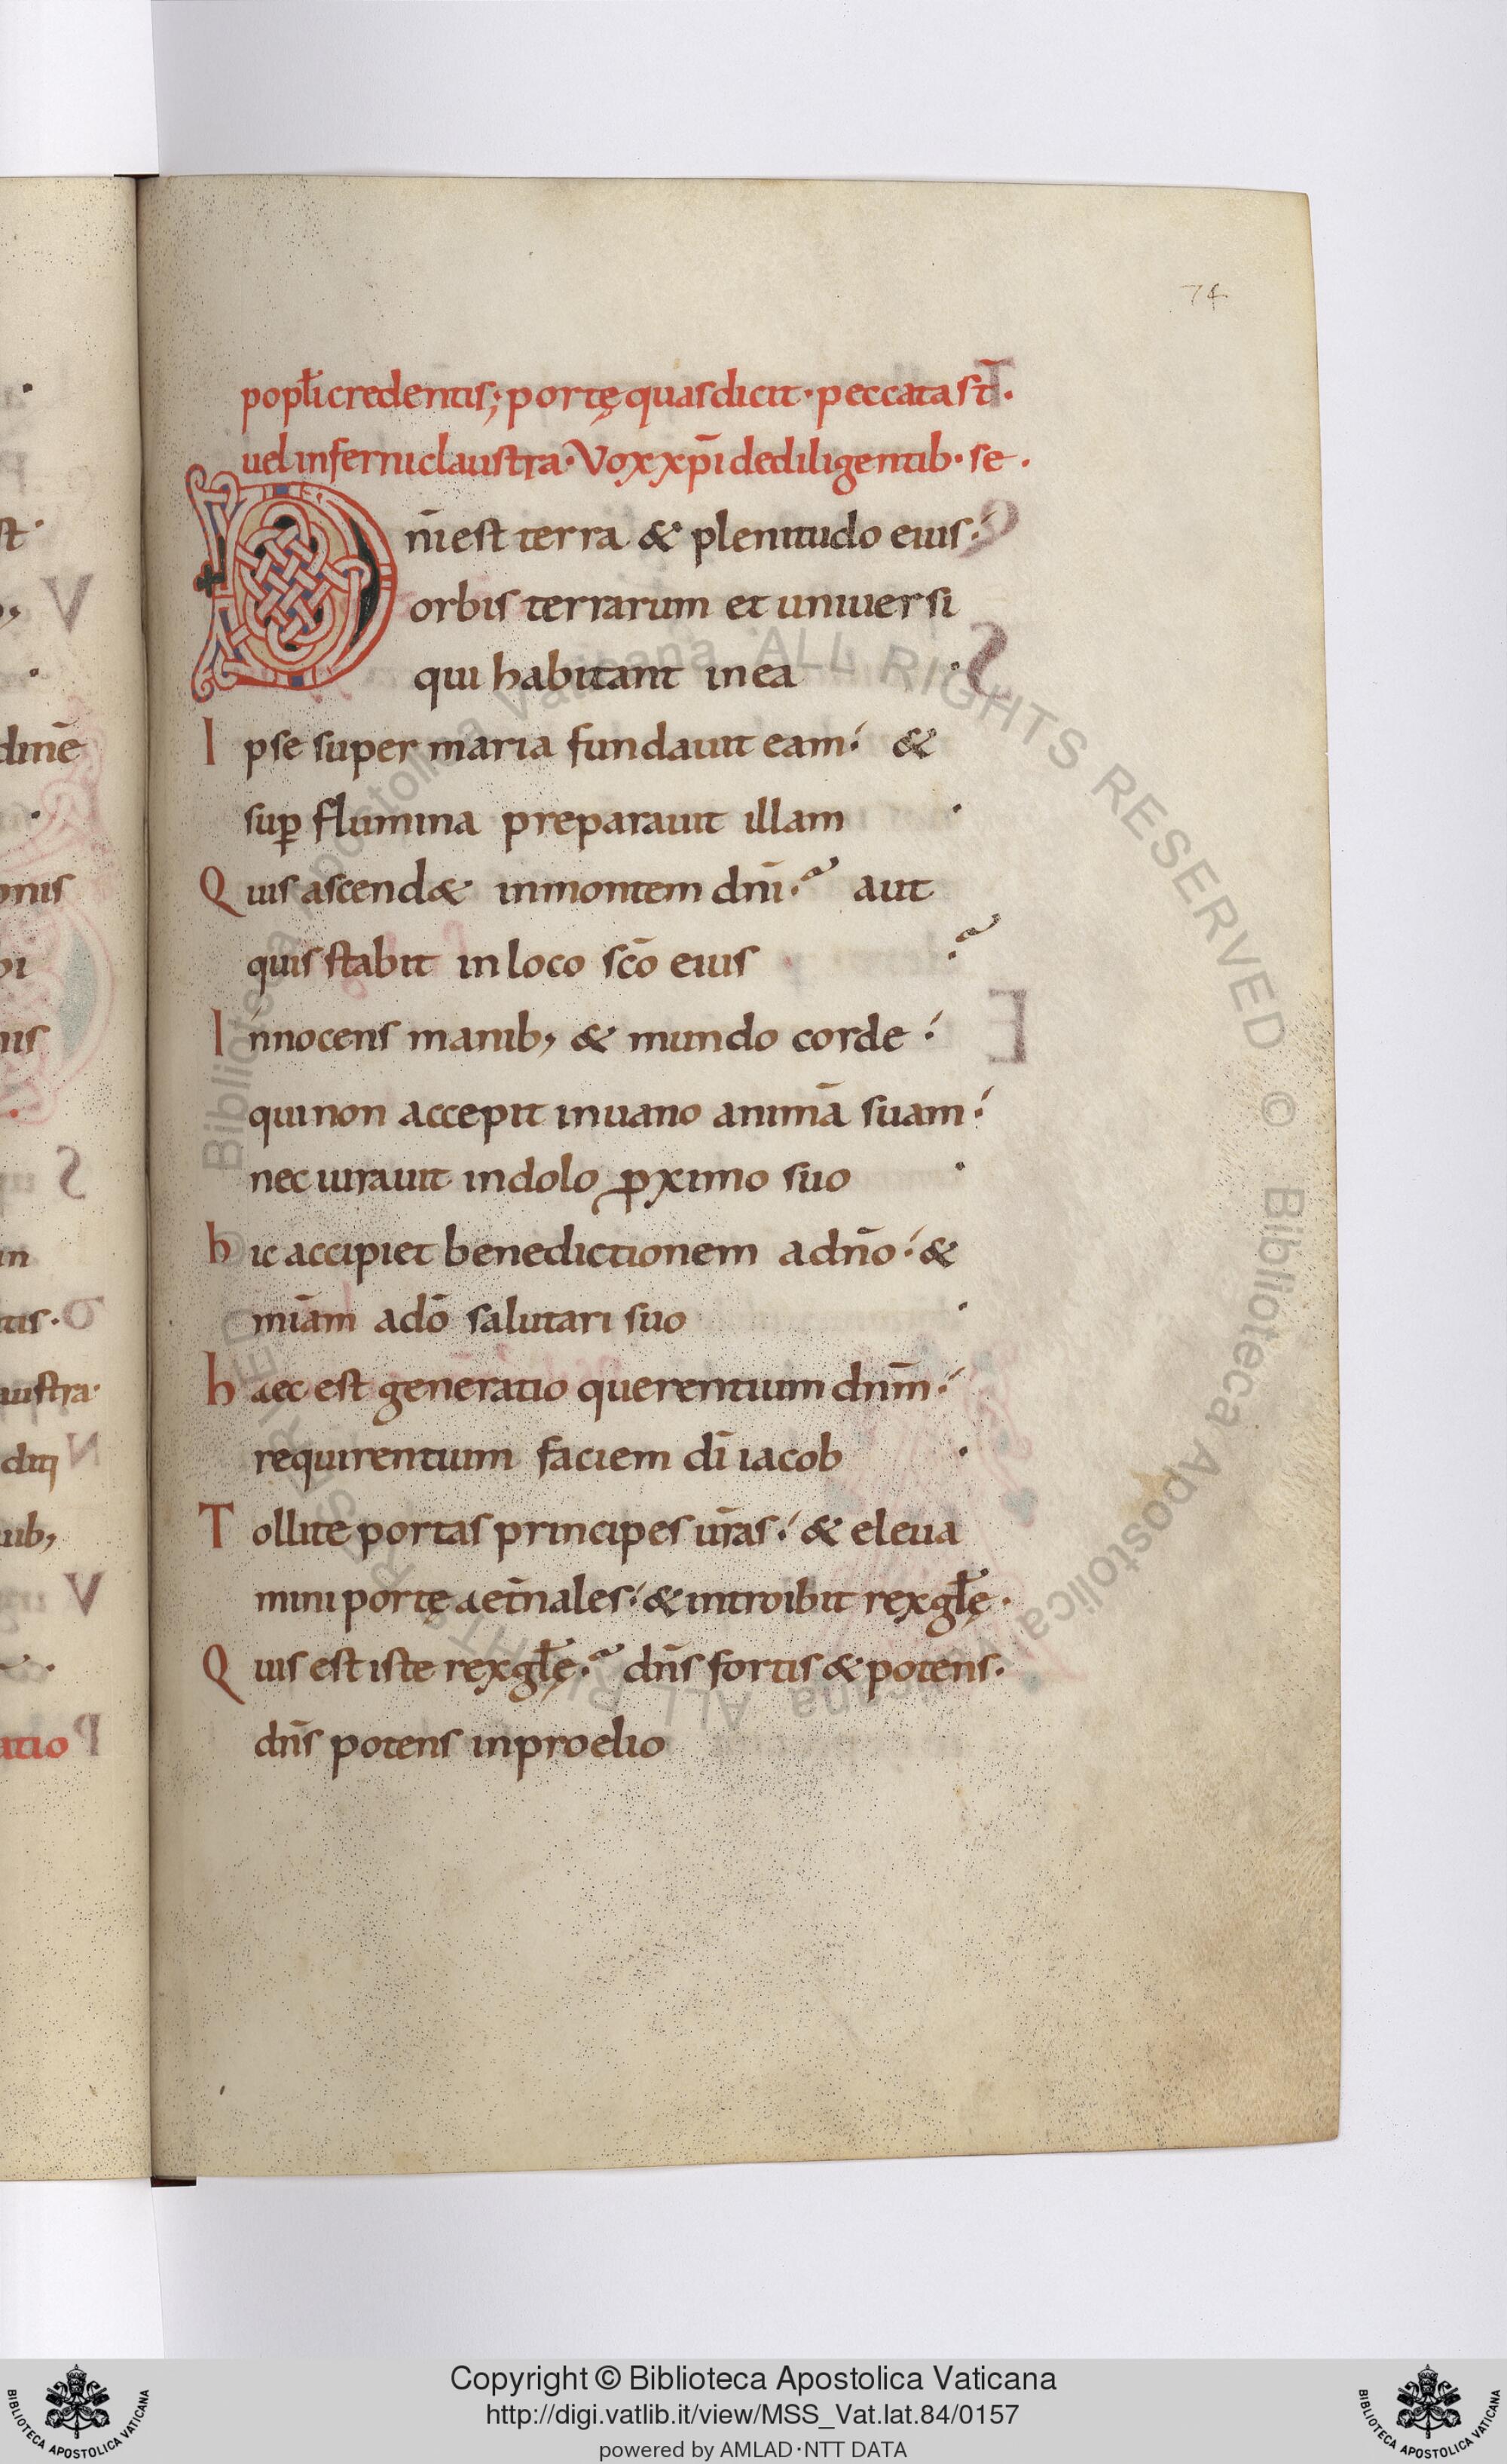 74
popłi credentis; portę quas dicit · peccata st̄ ·
uel inferni claustra · Vox xp̄i de diligentib · se ·
Dn̄i est terra & plenitudo eius
orbis terrarum et uniuersi
qui habitant in ea ·
Ipse super maria fundauit eam & 
sup̱ flumina preparauit illam ·
Quis ascend& in montem dn̄i aut
quis stabit in loco sc̄o eius
Innocens manib, & mundo corde
qui non accepit in uano animā suam
nec iurauit in dolo ꝓximo suo ·
hic accipiet benedictionem a dn̄o &
mīam a dō salutari suo ·
haec est generatio querentium dn̄m
requirentium faciem dī iacob ·
Tollite portas principes ur̄as & eleua
mini portę aet̄nales & introibit rex głę ·
Quis est iste rex głę dn̄s fortis & potens ·
dn̄s potens in proelio
dinē
onis
bi
nis
in
tis ·
austra ·
ditq
uib,
atio
Biblioteca Apostolica Vaticana ALL RIGHTS RESERVED © Biblioteca Apostolica Vaticana ALL RIGHTS RESERVED ©
Copyright © Biblioteca Apostolica Vaticana
http://digi.vatlib.it/view/MSS_Vat.lat.84/0157
powered by AMLAD·NTT DATA
BIBLIOTECA APOSTOLICA VATICANA
BIBLIOTECA APOSTOLICA VATICANA